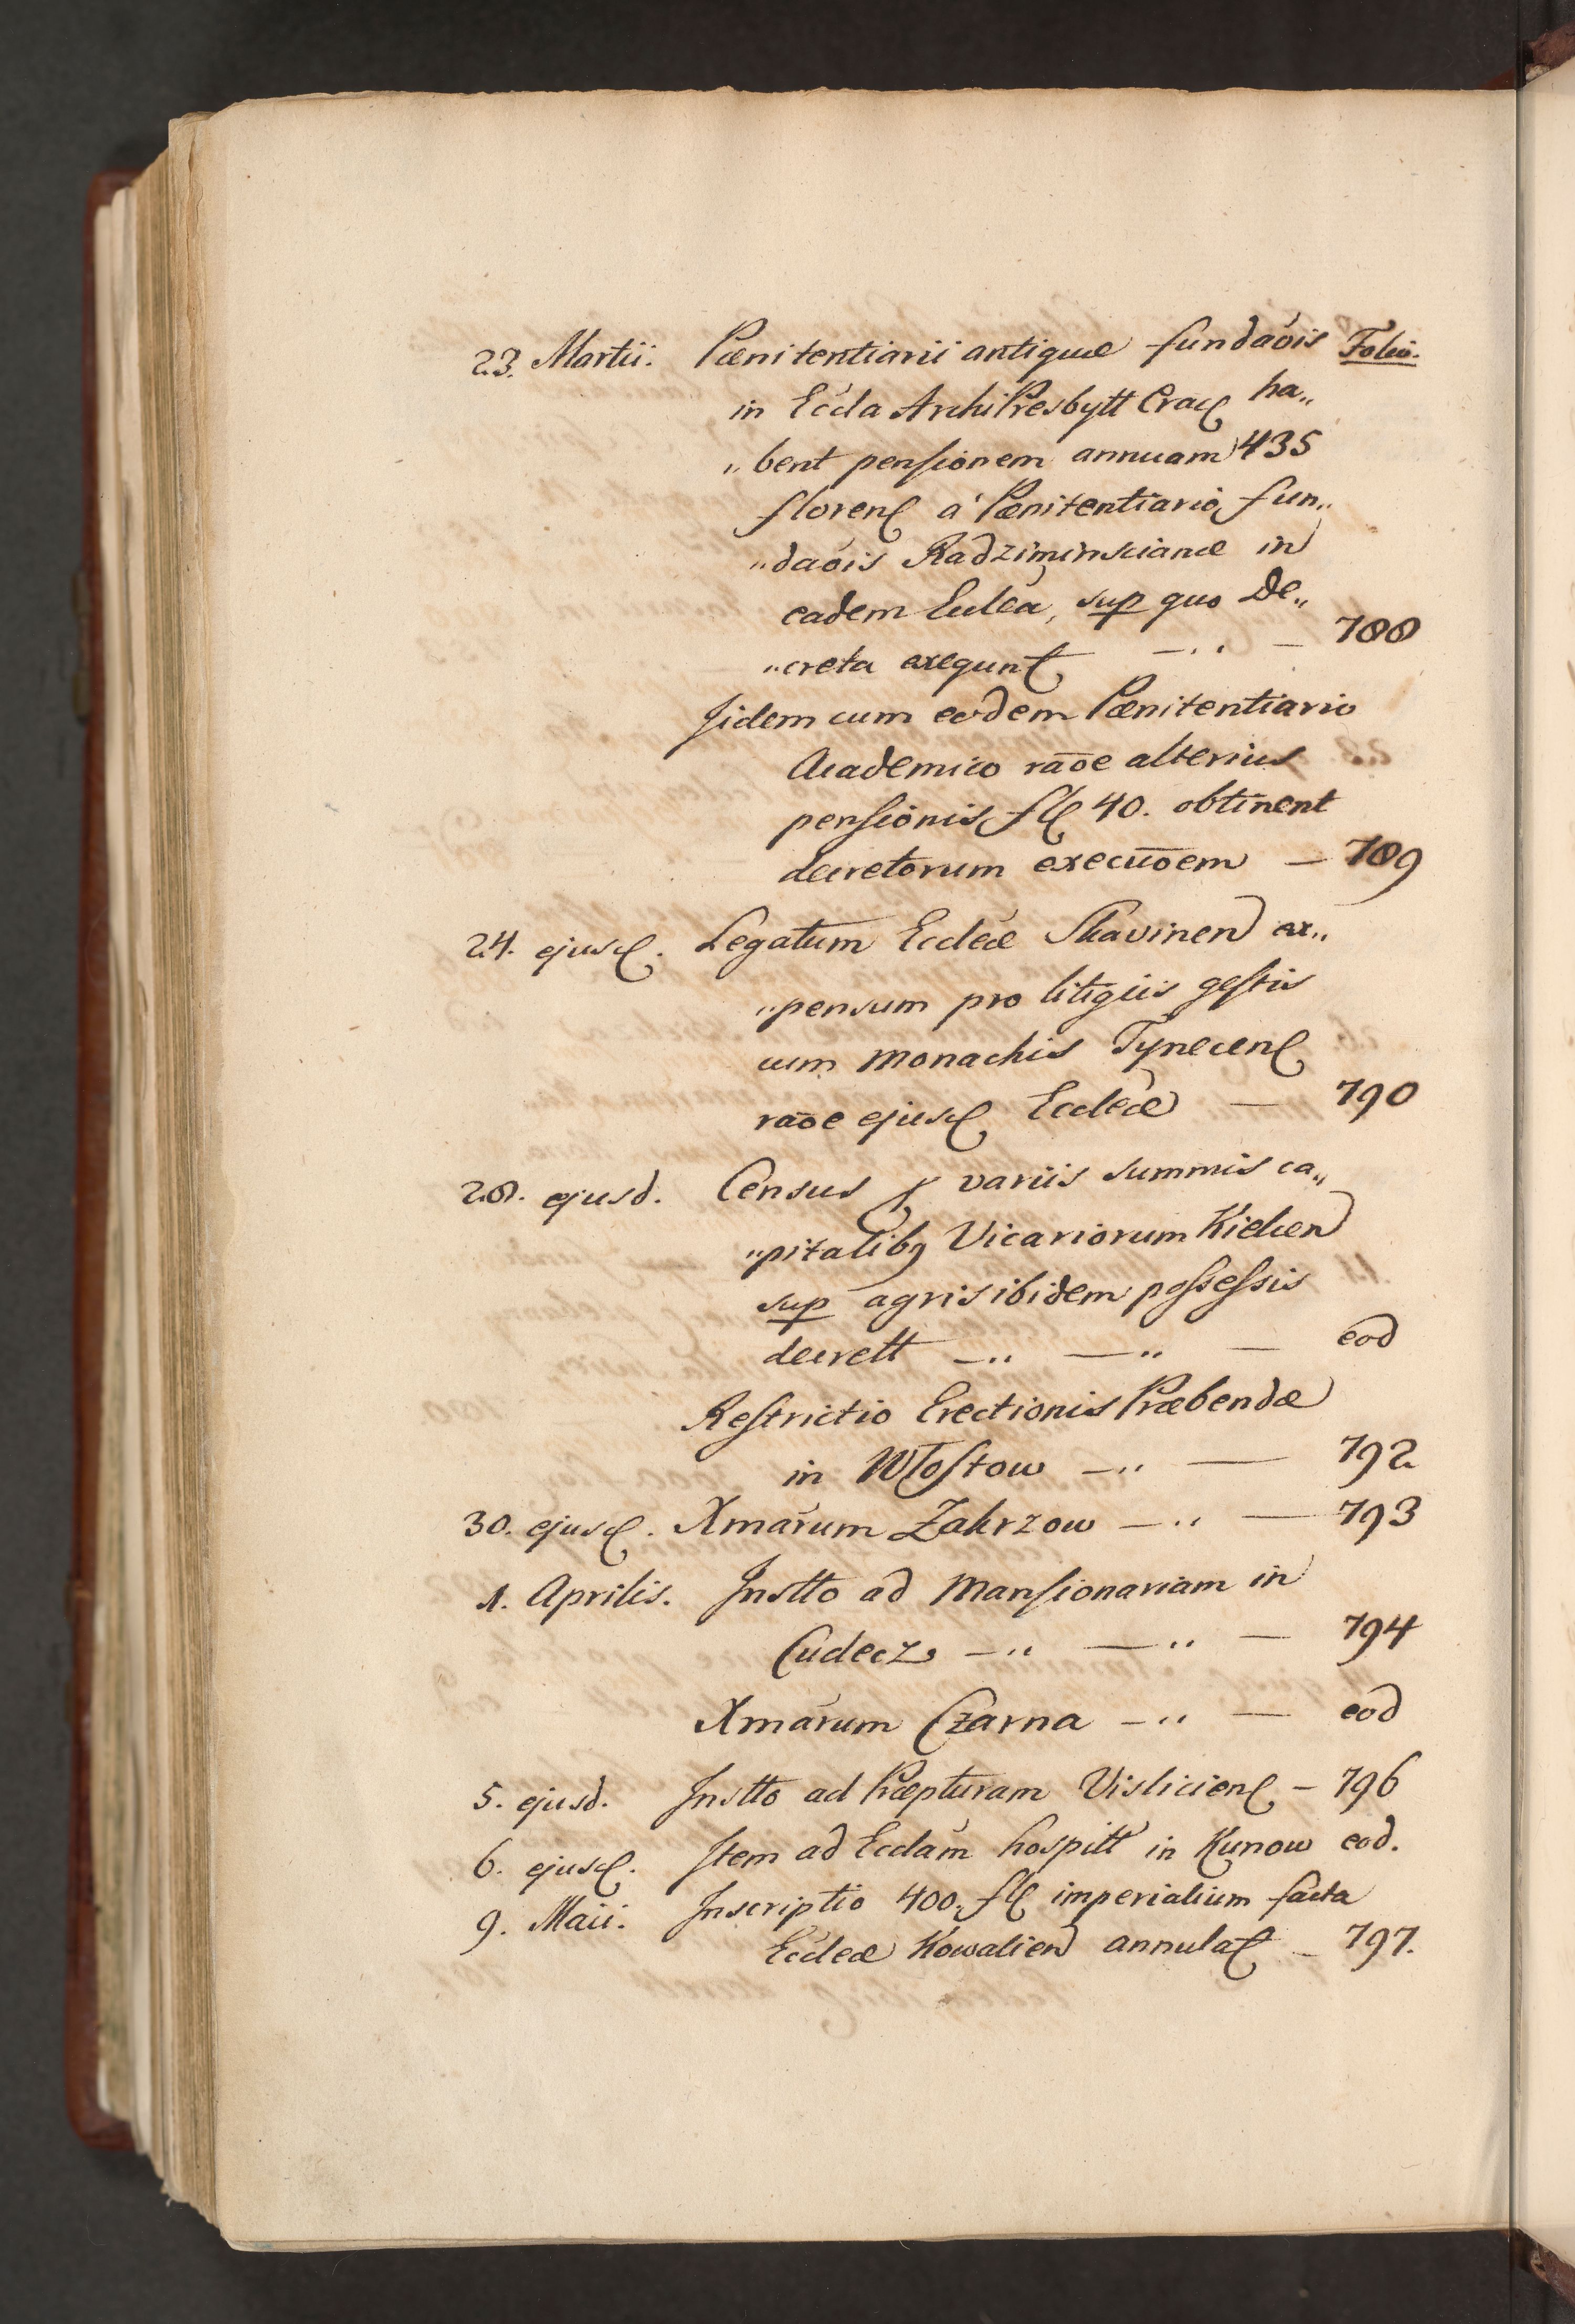 23. Martii. Pœnitentiarii antiquæ fundaōis Folio.
in Eccla ArchiPresbytt Crac ha„
„bent pensionem annuam 435
floren a Pœnitentiario fun„
„daōis Radziminscianæ in
eadem Ecclea, sup quo De„
„creta exequunt — „ — 788
Jidem cum eodem Pœnitentiario
Academico raōe alterius
pensionis fl 40. obtinent
decretorum execuōem — 789
24. ejusd. Legatum Eccleæ Skavinen ex„
„pensum pro litigiis gestis
cum Monachis Tynecen
raōe ejusd Eccleæ — 790
28. ejusd. Census ex variis summis ca„
„pitalibq Vicariorum Kielcen
sup agris ibidem possessis
decrett — „ — „ — eod
Restrictio Erectionis Præbendæ
in Włostow — „ — 792
30. ejusd. Xmarum Zakrzow — „ — 793
1. Aprilis. Instto ad Mansionariam in
Cudecz — „ — „ — 794
Xmarum Czarna — „ — eod
5. ejusd. Instto ad Præpturam Vislicien — 796
6. ejusd. Item ad Ecclam hospitt in Kunow eod.
9. Maii. Inscriptio 400. fl imperialium facta
Eccleæ Kowalien annulat — 797.